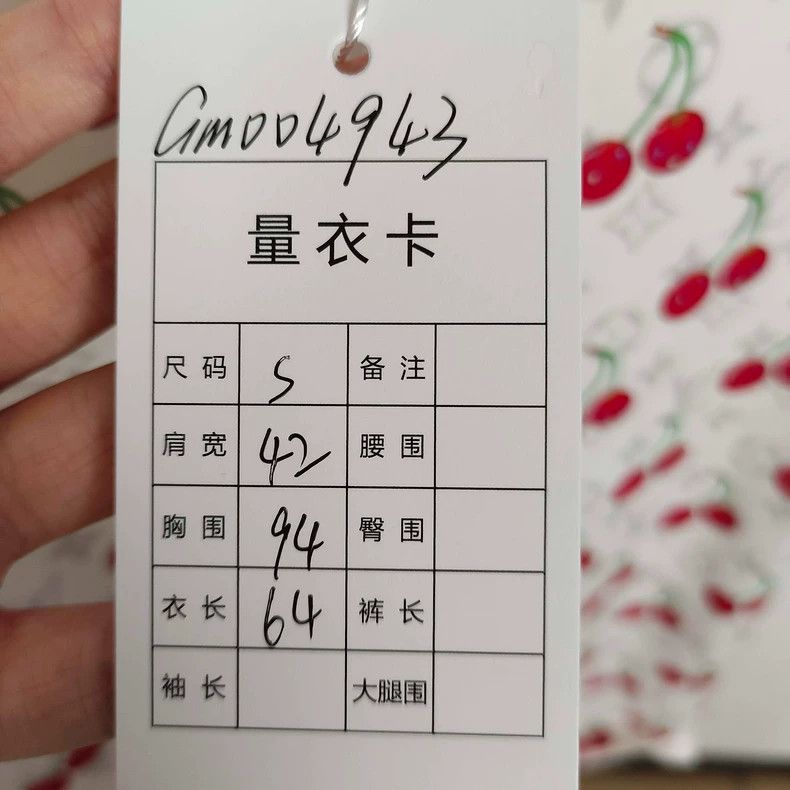 Gm004943
量衣卡
尺码 S 备注
肩宽 42 腰围
胸围 94 臀围
衣长 64 裤长
袖长 大腿围